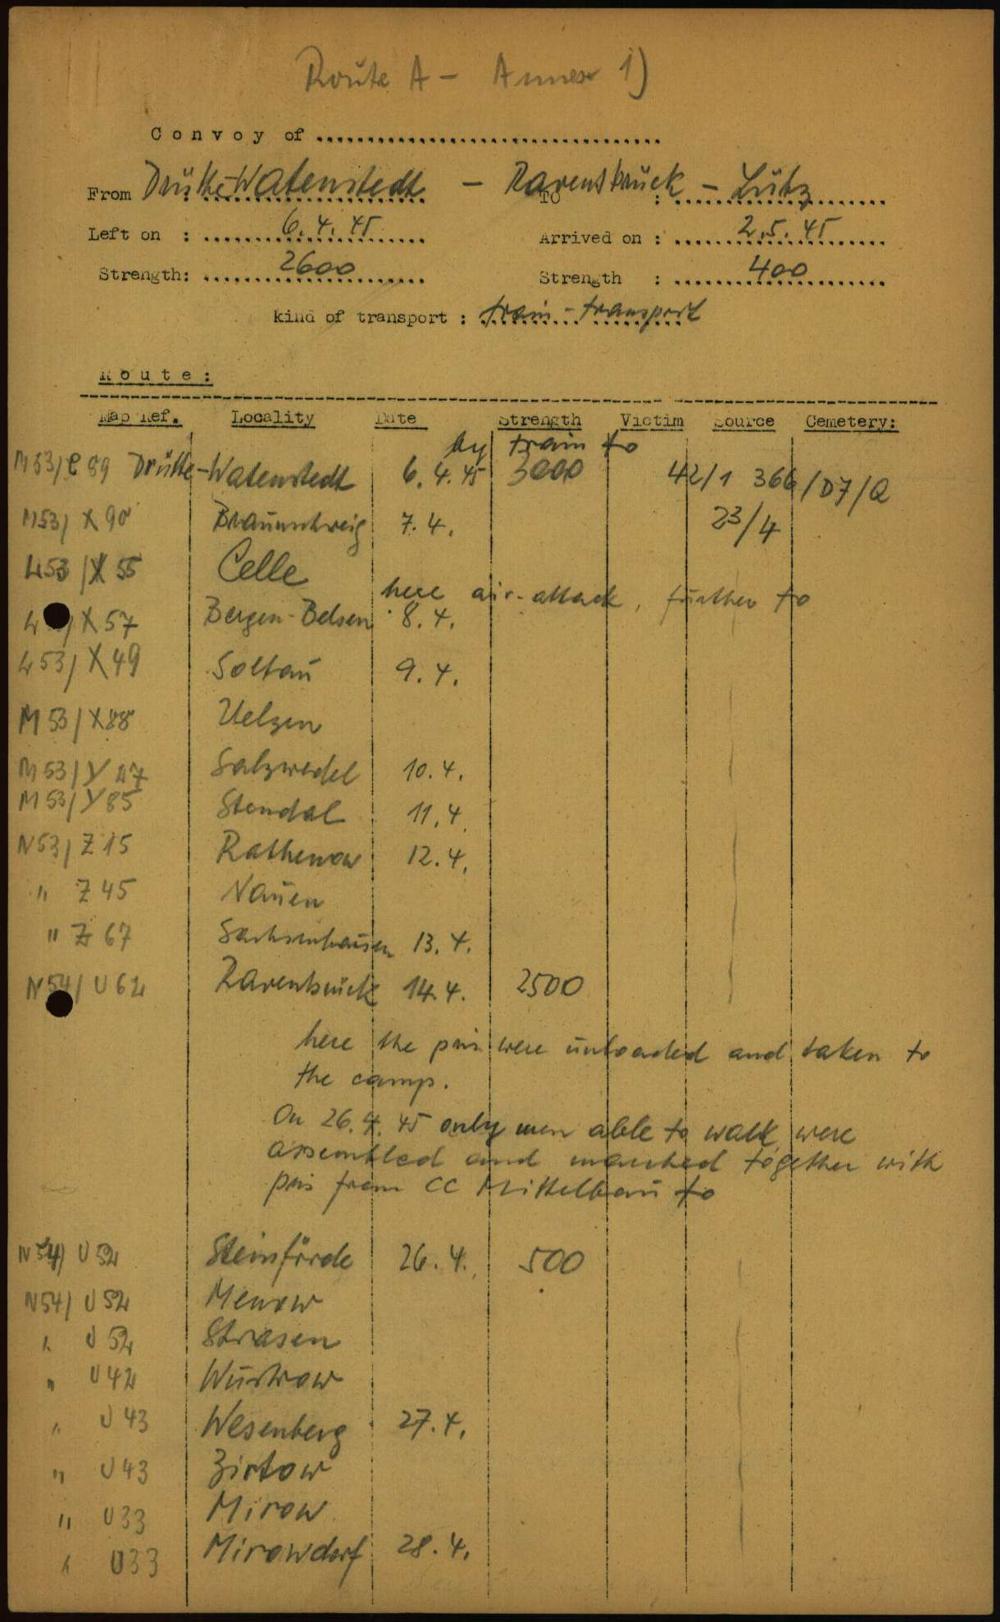 Route A - Annex 1)
Convoy of ..................................
From Drütte-Watenstedt - Ravensbrück - Lübz
TO :
Left on : 6.4.45 Arrived on : 2.5.45
Strength: 2600 Strength : 400
kind of transport : train-transport
Route:
Map Ref. Locality Date Strength Victim Source Cemetery:
by train to
M53/C 89 Drütte-Watenstedt 6.4.45 3000 42/1 366/D7/Q
M53/X 90 Braunschweig 7.4. 23/4
L53/X 55 Celle
here air-attack, further to
X57 Bergen-Belsen 8.4.
L53/X49 Soltau 9.4.
M53/X88 Uelzen
M53/Y 47 Salzwedel 10.4.
M53/Y85 Stendal 11.4.
N53/Z15 Rathenow 12.4.
" Z45 Nauen
" Z67 Sachsenhausen 13.4.
N54/U62 Ravensbrück 14.4. 2500
here the pris were unloaded and taken to
the camp.
On 26.4.45 only men able to walk were
assembled and marched together with
pris from CC Mittelbau to
N54/U52 Steinförde 26.4. 500
N54/U52 Menow
" U52 Strasen
" U42 Wustrow
" U43 Wesenberg 27.4.
" U43 Zirtow
" U33 Mirow
" U33 Mirowdorf 28.4.